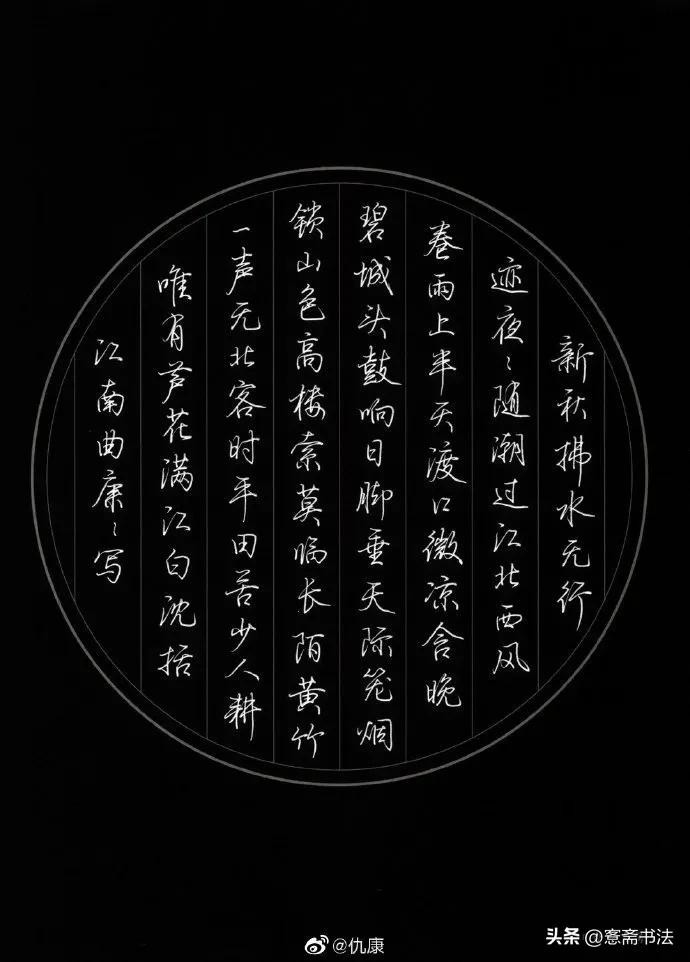 新秋拂水无行
迹夜〻随潮过江北西风
卷雨上半天渡口微凉含晚
碧城头鼓响日脚垂天际笼烟
锁山色高楼索莫临长陌黄竹
一声无北客时平田苦少人耕
唯有芦花满江白沈括
江南曲康〻写
@仇康
头条 @窓斋书法